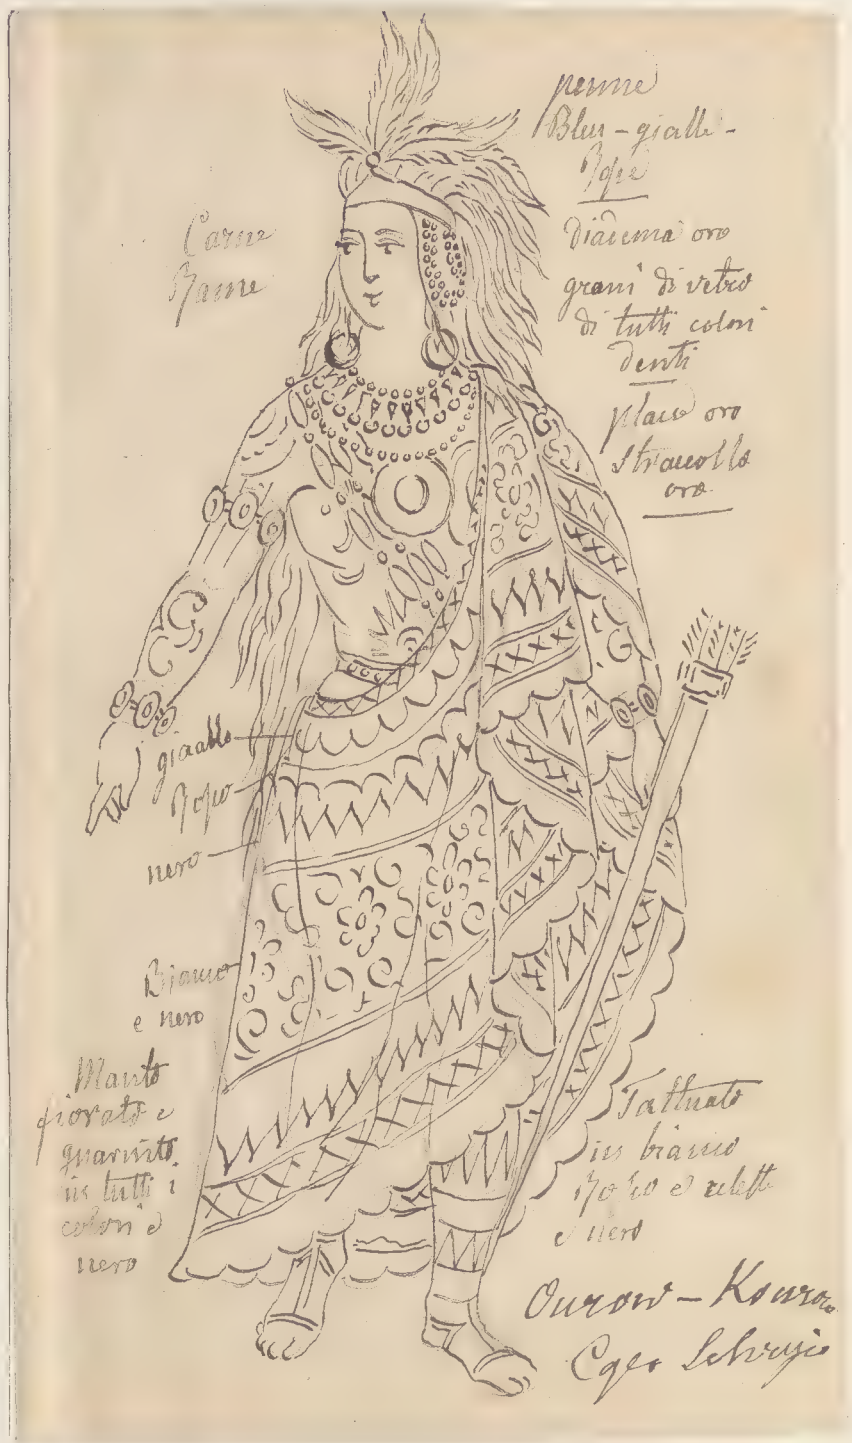 penne
Bleu - gialle -
Rosse
Carne
Rame
Diadema oro
grani di vetro
di tutti colori
denti
placo oro
stracollo
oro
giaallo
Rosso
nero
Bianco
e nero
Manto
fiorato e
guarnito
in tutti i
colori e
nero
Tattuato
in bianco
Rosso e celeste
e nero
Ourow - Kouroo
Capo Selvagio